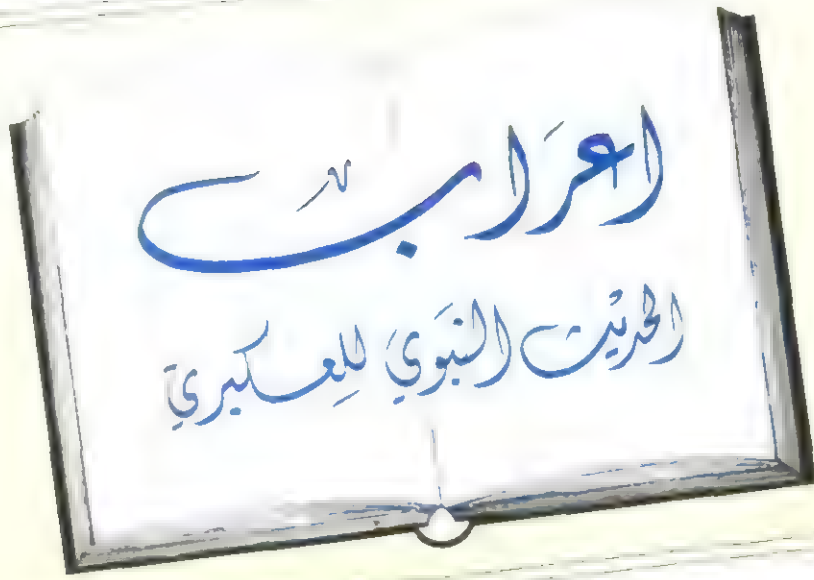 اعراب
الحديث النبوي للعكبري